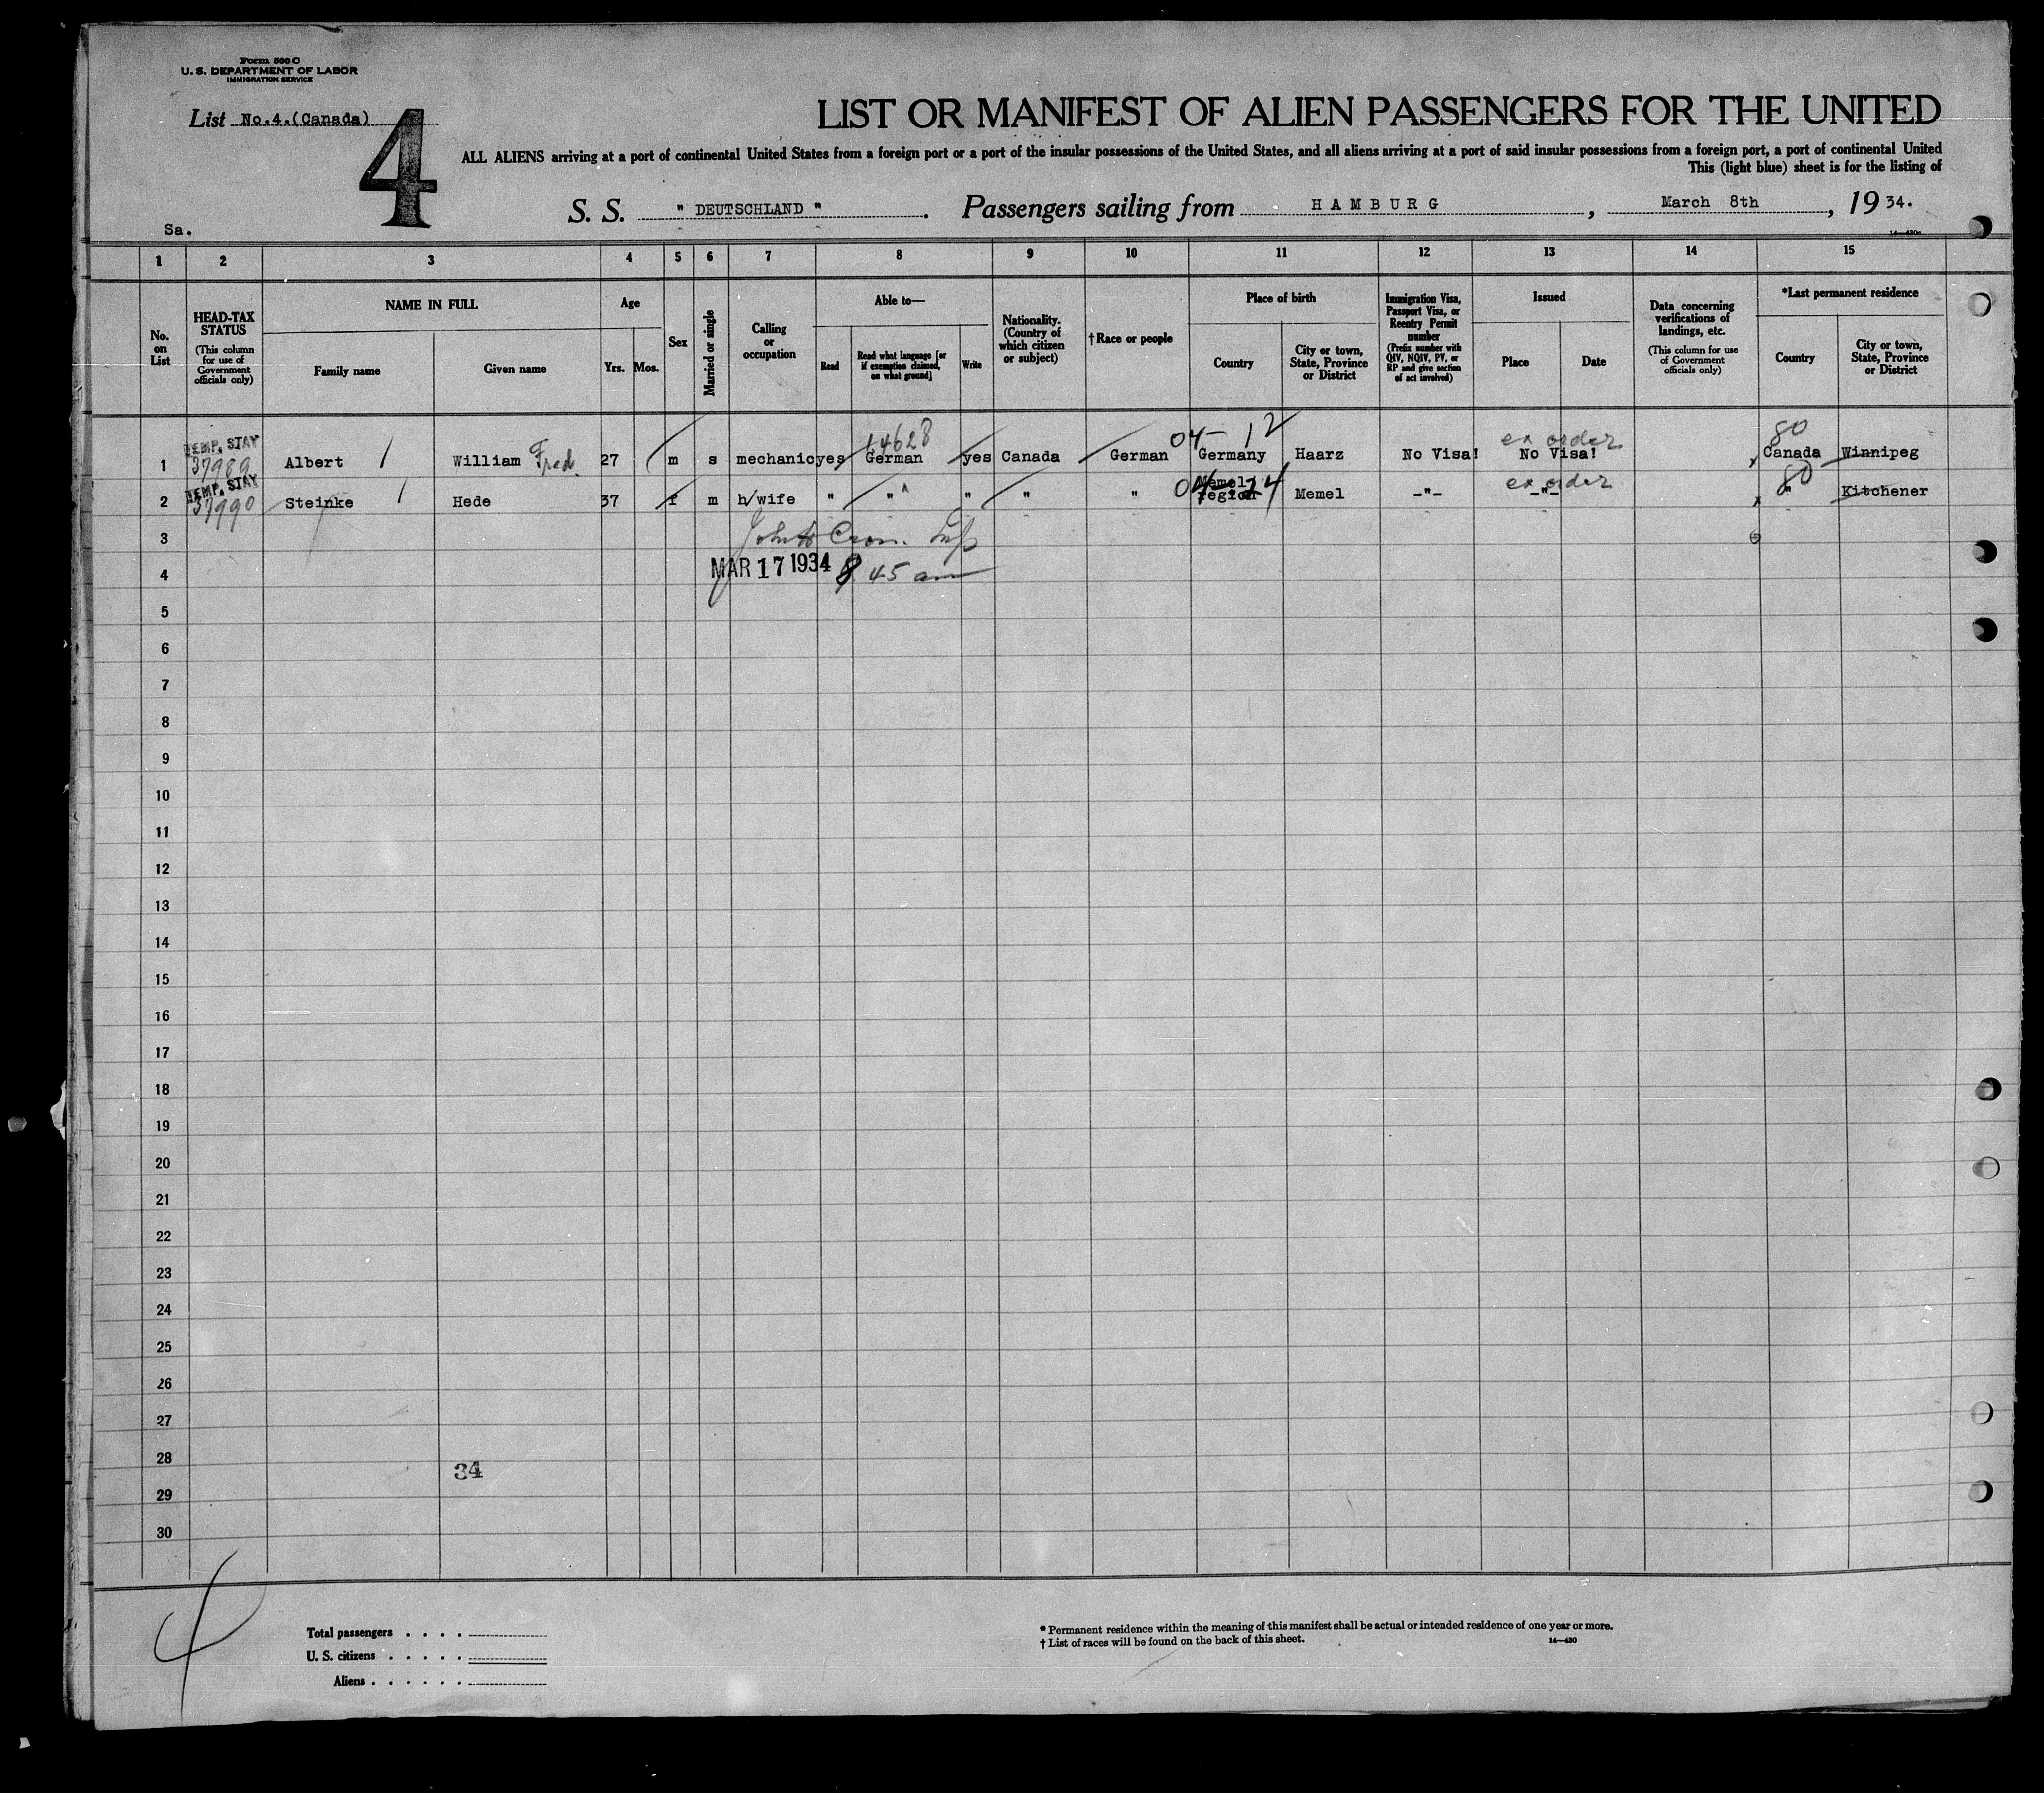 Form 500 C
U. S. DEPARTMENT OF LABOR
IMMIGRATION SERVICE
List No.4.(Canada)
4
LIST OR MANIFEST OF ALIEN PASSENGERS FOR THE UNITED
ALL ALIENS arriving at a port of continental United States from a foreign port or a port of the insular possessions of the United States, and all aliens arriving at a port of said insular possessions from a foreign port, a port of continental United
This (light blue) sheet is for the listing of
S. S. " DEUTSCHLAND ". Passengers sailing from HAMBURG, March 8th, 1934.
Sa.
14—430c
1 2 3 4 5 6 7 8 9 10 11 12 13 14 15
No. on List
HEAD-TAX STATUS (This column for use of Government officials only)
NAME IN FULL
Family name
Given name
Age
Yrs. Mos.
Sex
Married or single
Calling or occupation
Able to—
Read
Read what language [or if exemption claimed, on what ground]
Write
Nationality. (Country of which citizen or subject)
†Race or people
Place of birth
Country
City or town, State, Province or District
Immigration Visa, Passport Visa, or Reentry Permit number (Prefix number with QIV, NQIV, PV, or RP and give section of act involved)
Issued
Place
Date
Data concerning verifications of landings, etc. (This column for use of Government officials only)
*Last permanent residence
Country
City or town, State, Province or District
14628 04- 12 ex order 80
1 TEMP. STAY 37989 Albert William Fred 27 m s mechanic yes German yes Canada German Germany Haarz No Visa! No Visa! Canada Winnipeg
04-24 ex order 80
2 TEMP. STAY 37990 Steinke Hede 37 f m h/wife " " " " " Memel region Memel -"- -"- " Kitchener
3
4 MAR 17 1934 8 45 am
5
6
7
8
9
10
11
12
13
14
15
16
17
18
19
20
21
22
23
24
25
26
27
28 34
29
30
4
Total passengers . . . .
U. S. citizens . . . . .
Aliens . . . . . .
* Permanent residence within the meaning of this manifest shall be actual or intended residence of one year or more.
† List of races will be found on the back of this sheet.
14—430